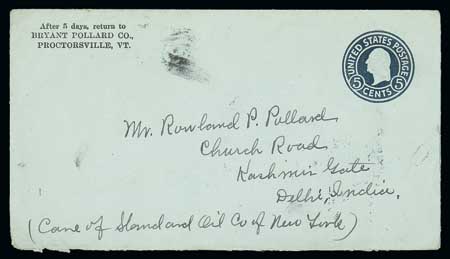 After 5 days, return to
BRYANT POLLARD CO.,
PROCTORSVILLE, VT.
UNITED STATES POSTAGE
5 CENTS 5
Mr. Rowland P. Pollard
Church Road
Kashmir Gate
Delhi, India.
(Care of Standard Oil Co of New York)